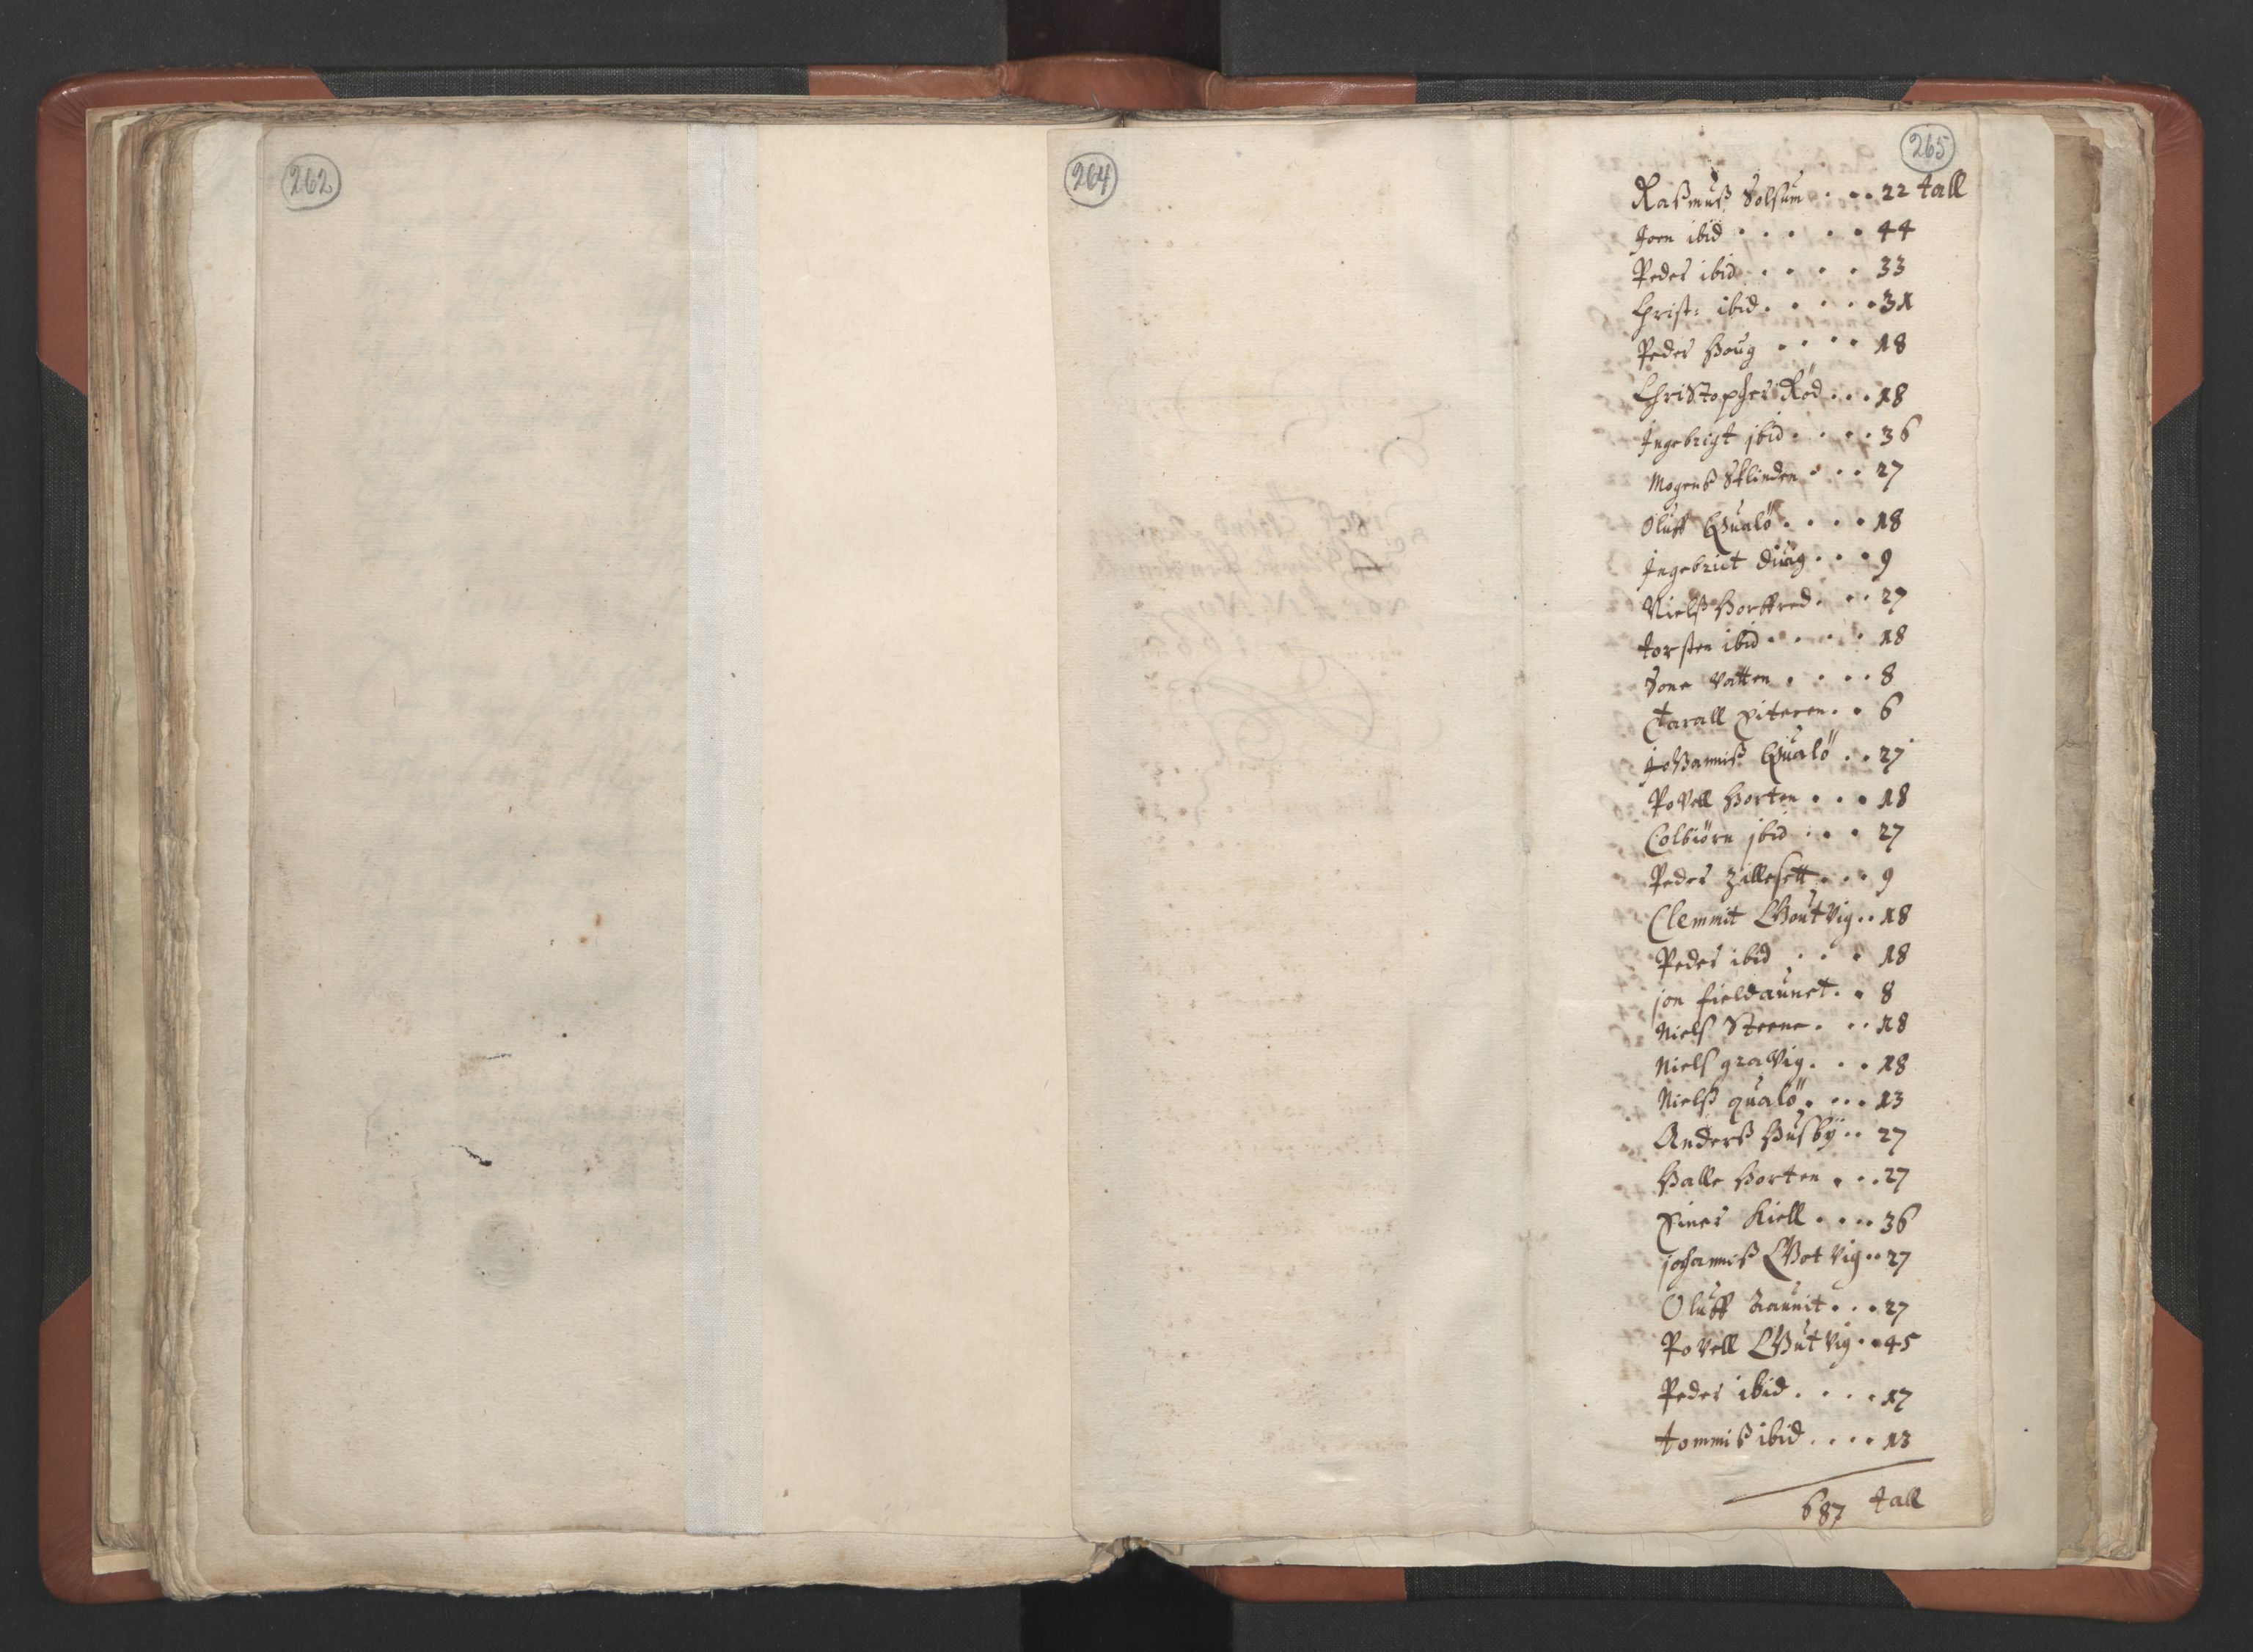 262
264
265
Raßmuß Solsum . . . 22 tall
Joen ibid . . . . . 44
Peder ibid . . . . 33
Christ: ibid . . . . . 31
Peder Houg . . . . 18
Christopher Röd . . . 18
Ingebrigt jbid . . . . 36
Mogenß Sklinden . . . 27
Oluff Qualö . . . . 18
Ingebrict Duag . . . 9
Nielß Horffred . . . 27
Torsten ibid . . . . . 18
Sone Vatten . . . . 8
Tarall Eiteren . . 6
Johanniß Qualö . . 27
Povell Horten . . . 18
Colbiörn jbid . . . 27
Peder Zillesett . . . 9
Clemmit Goutvig . . 18
Peder ibid . . . 18
jon fieldaunet . . 8
Niels Steene . . . 18
Niels gravig . . . 18
Nielß qualö . . . . 13
Anderß Hußbÿ . . 27
Halle Horten . . . 27
Einer Kiell . . . . 36
johanniß Gotvig . . 27
Oluff Aaunit . . . 27
Povell Gutvig . . 45
Peder ibid . . . . 17
Tommiß ibid . . . . 13
687 tall